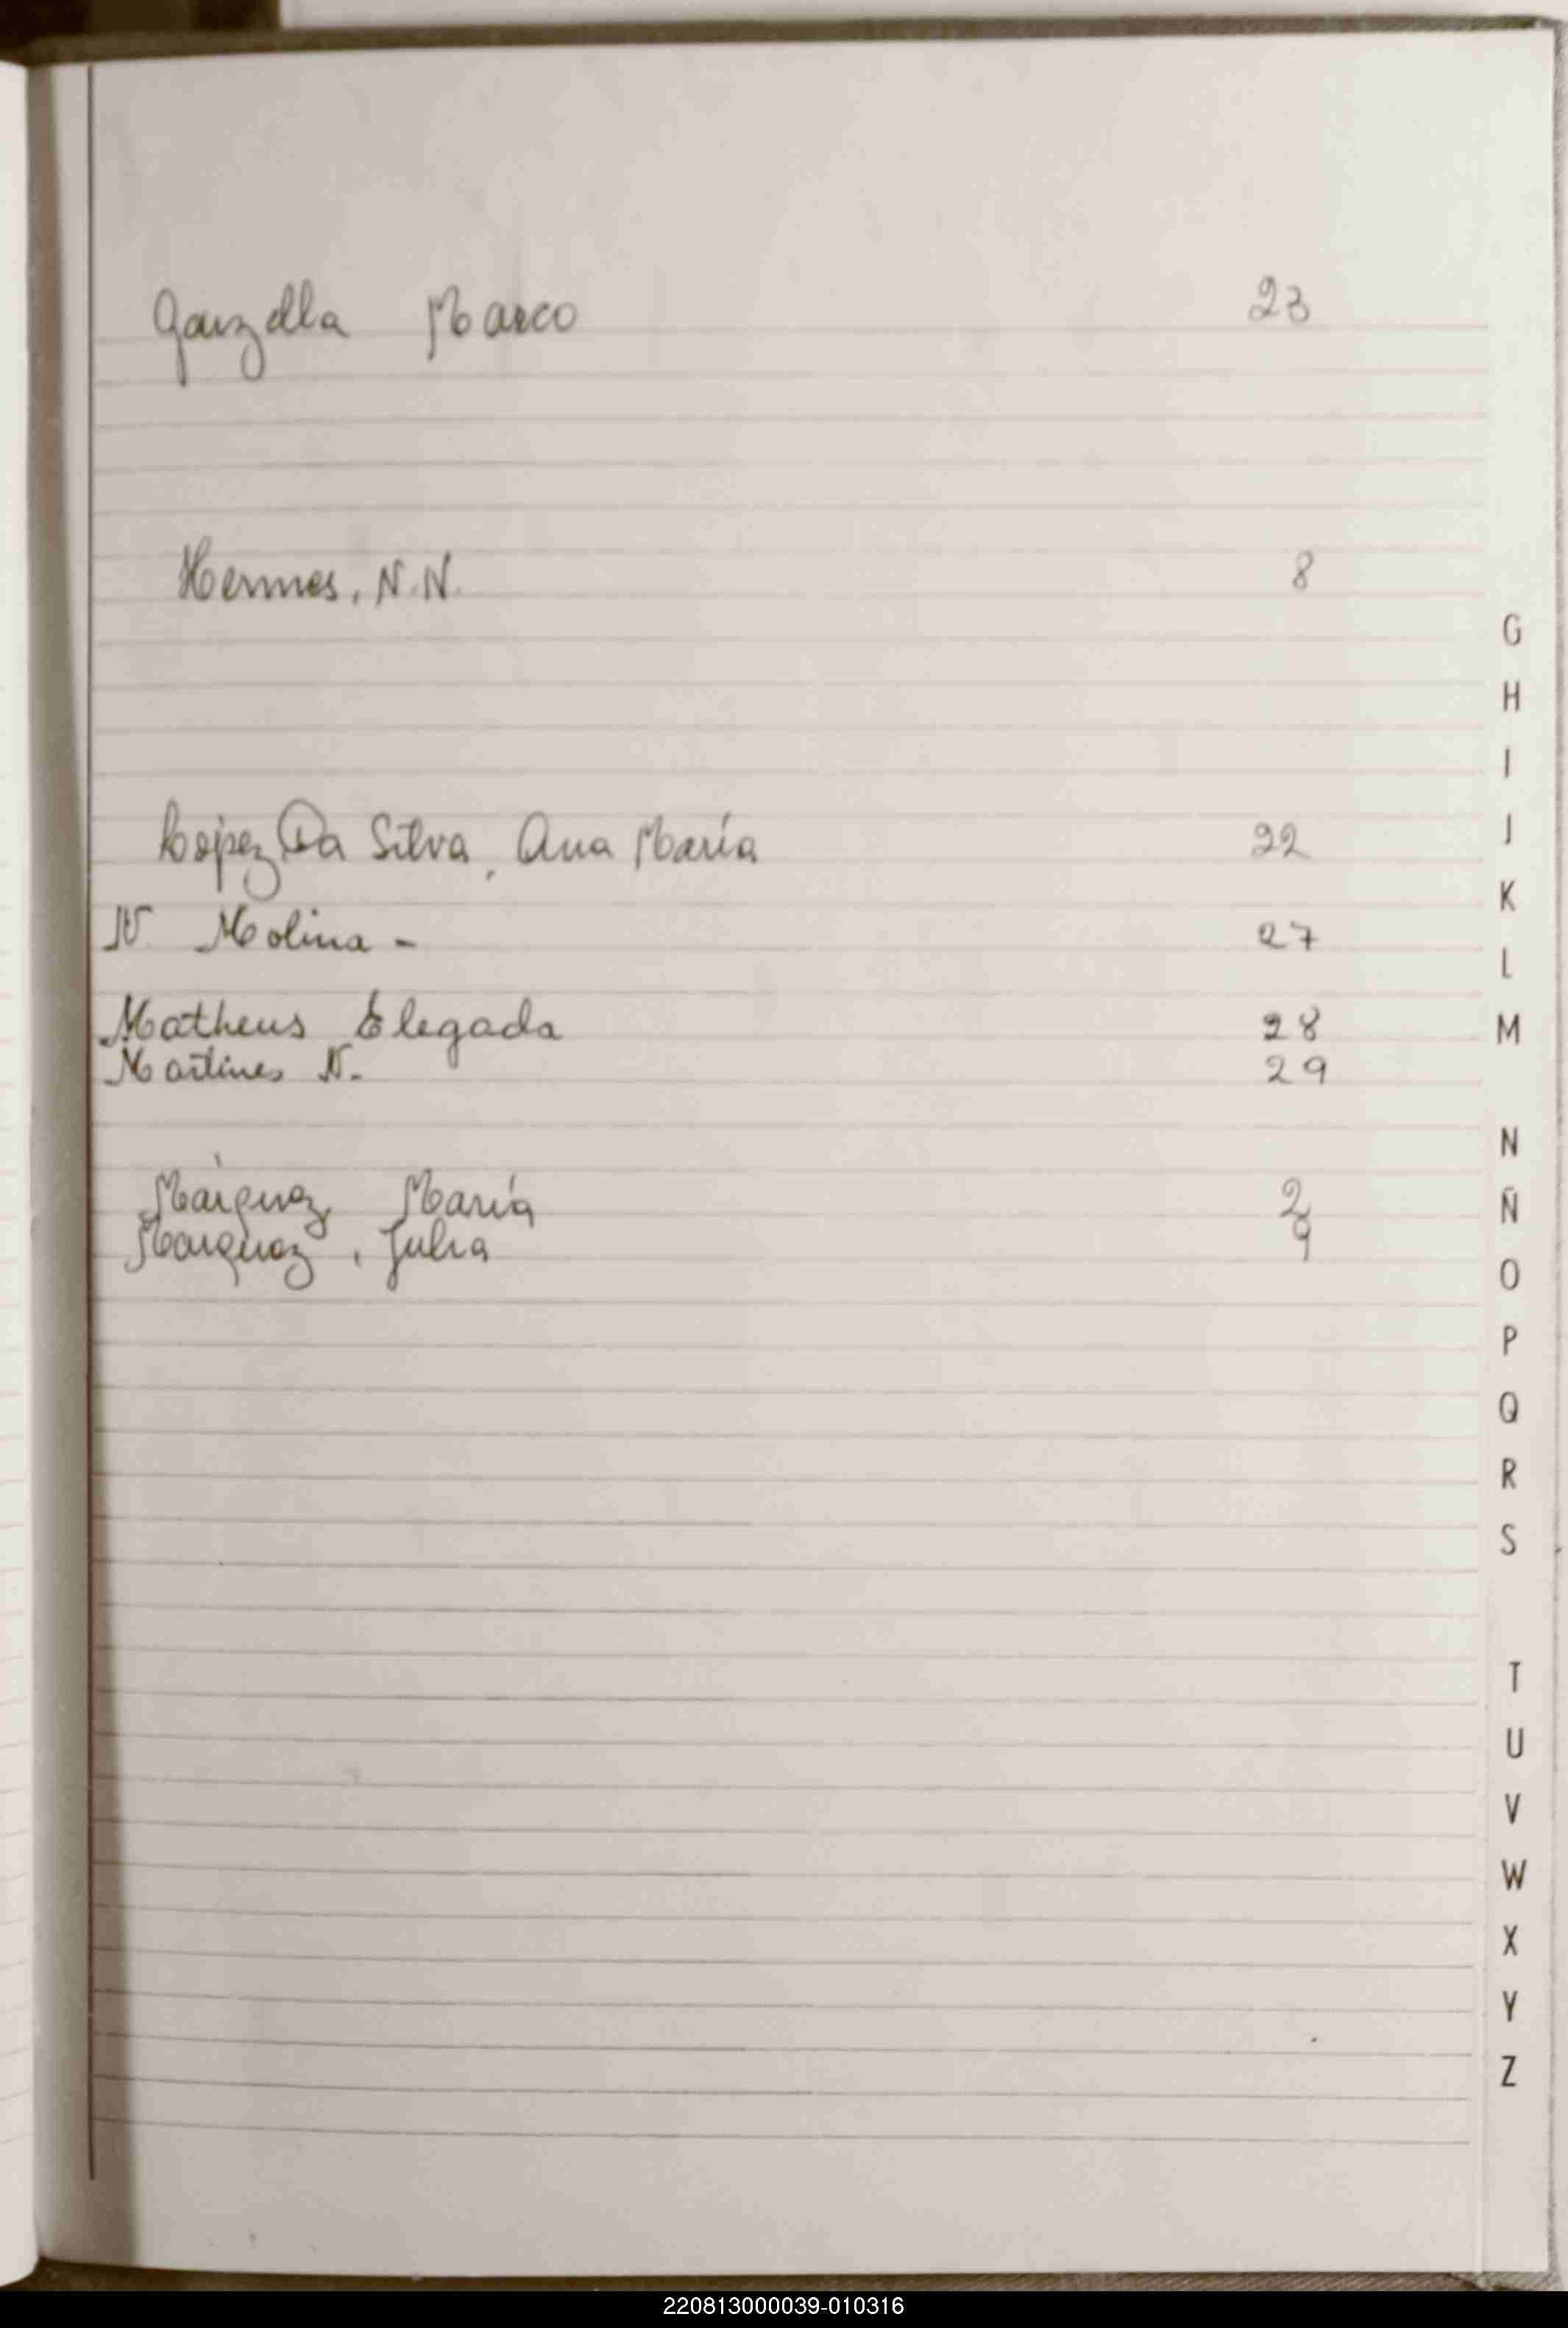 Garzella Marco 23
Hermes, N.N. 8
López Da Silva, Ana María 22
N Molina - 27
Matheus Elegada 28
Martines N. 29
Márquez María 2
Marquez, Julia 9
G
H
I
J
K
L
M
N
Ñ
O
P
Q
R
S
T
U
V
W
X
Y
Z
220813000039-010316